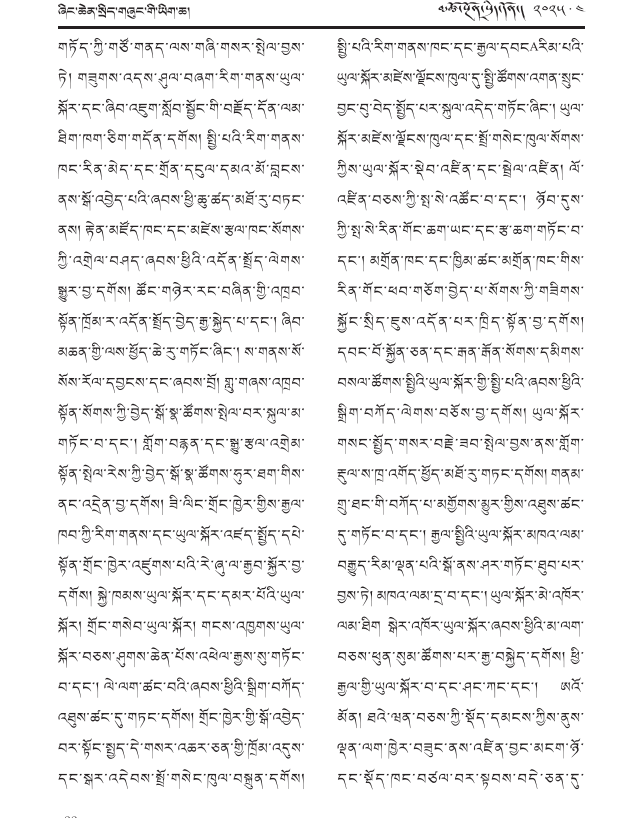 ཞིང་ཆེན་སྲིད་གཞུང་གི་ཡིག་ཆ།
༢༠༢༥ · ༤
གཏོད་ཀྱི་གཙོ་གནད་ལས་གཞི་གསར་སྤེལ་བྱས་
ཏེ། གཟུགས་འདས་ཤུལ་བཞག་རིག་གནས་ཡུལ་
སྐོར་དང་ཞིབ་འཇུག་སློབ་སྦྱོང་གི་བརྗོད་དོན་ལམ་
ཐིག་ཁག་ཅིག་གདོན་དགོས། སྤྱི་པའི་རིག་གནས་
ཁང་རིན་མེད་དང་གྲོན་དངུལ་དམའ་མོ་བླངས་
ནས་སྒོ་འབྱེད་པའི་ཞབས་ཕྱི་ཆུ་ཚད་མཐོ་རུ་བཏང་
ནས། རྟེན་མཛོད་ཁང་དང་མཛེས་རྩལ་ཁང་སོགས་
ཀྱི་འགྲེལ་བཤད་ཞབས་ཕྱིའི་འདོན་སྤྲོད་ལེགས་
སྒྱུར་བྱ་དགོས། ཚོང་གཉེར་རང་བཞིན་གྱི་འཁྲབ་
སྟོན་ཁྲོམ་ར་འདོན་སྤྲོད་བྱེད་རྒྱུ་སྐྱེད་པ་དང་། ཞིབ་
མཆན་གྱི་ལས་ཕྱོད་ཆེ་རུ་གཏོང་ཞིང་། ས་གནས་སོ་
སོས་རོལ་དབྱངས་དང་ཞབས་བྲོ། གླུ་གཞས་འཁྲབ་
སྟོན་སོགས་ཀྱི་བྱེད་སྒོ་སྣ་ཚོགས་སྤེལ་བར་སྐུལ་མ་
གཏོང་བ་དང་། གློག་བརྙན་དང་སྒྱུ་རྩལ་འགྲེམ་
སྟོན་སྤེལ་རེས་ཀྱི་བྱེད་སྒོ་སྣ་ཚོགས་ཧུར་ཐག་གིས་
ནང་འདྲེན་བྱ་དགོས། ཟི་ལིང་གྲོང་ཁྱེར་གྱིས་རྒྱལ་
ཁབ་ཀྱི་རིག་གནས་དང་ཡུལ་སྐོར་འཛད་སྤྱོད་དཔེ་
སྟོན་གྲོང་ཁྱེར་འཛུགས་པའི་རེ་ཞུ་ལ་རྒྱབ་སྐྱོར་བྱ་
དགོས། སྐྱེ་ཁམས་ཡུལ་སྐོར་དང་དམར་པོའི་ཡུལ་
སྐོར། གྲོང་གསེབ་ཡུལ་སྐོར། གངས་འཁྱགས་ཡུལ་
སྐོར་བཅས་ཤུགས་ཆེན་པོས་འཕེལ་རྒྱས་སུ་གཏོང་
བ་དང་། ལེ་ལག་ཚང་བའི་ཞབས་ཕྱིའི་སྒྲིག་བཀོད་
འཐུས་ཚང་དུ་གཏང་དགོས། གྲོང་ཁྱེར་གྱི་སྒོ་འབྱེད་
བར་སྟོང་སྤྱད་དེ་གསར་འཆར་ཅན་གྱི་ཁྲོམ་འདུས་
དང་སྒར་འདེབས་སྤྲོ་གསེང་ཁུལ་བསྐྲུན་དགོས།
སྤྱི་པའི་རིག་གནས་ཁང་དང་རྒྱལ་དབངAརིམ་པའི་
ཡུལ་སྐོར་མཛེས་ལྗོངས་ཁུལ་དུ་སྤྱི་ཚོགས་འགན་སྲུང་
བྱང་བུ་བེད་སྤྱོད་པར་སྐུལ་འདེད་གཏོང་ཞིང་། ཡུལ་
སྐོར་མཛེས་ལྗོངས་ཁུལ་དང་སྤྲོ་གསེང་ཁུལ་སོགས་
ཀྱིས་ཡུལ་སྐོར་སྡེབ་འཛིན་དང་སྦྲེལ་འཛིན། ལོ་
འཛིན་བཅས་ཀྱི་སྤུས་འཚོང་བ་དང་། ཉོབ་དུས་
ཀྱི་སྤུས་རིན་གོང་ཆག་ཡང་དང་རྩ་ཆག་གཏོང་བ་
དང་། མགྲོན་ཁང་དང་ཁྱིམ་ཚང་མགྲོན་ཁང་གིས་
རིན་གོང་ཕབ་གཅོག་བྱེད་པ་སོགས་ཀྱི་གཟིགས་
སྐྱོང་སྲིད་ཇུས་འདོན་པར་ཁྲིད་སྟོན་བྱ་དགོས།
དབང་པོ་སྐྱོན་ཅན་དང་རྒན་རྒོན་སོགས་དམིགས་
བསལ་ཚོགས་སྤྱིའི་ཡུལ་སྐོར་གྱི་སྤྱི་པའི་ཞབས་ཕྱིའི་
སྒྲིག་བཀོད་ལེགས་བཅོས་བྱ་དགོས། ཡུལ་སྐོར་
གསང་སྤྱོད་གསར་བརྗེ་ཟབ་སྤེལ་བྱས་ནས་གློག་
རྡུལ་ས་ཁྲ་འགོད་ཕྱོད་མཐོ་རུ་གཏང་དགོས། གནམ་
གྲུ་ཐང་གི་བཀོད་པ་མགྱོགས་མྱུར་གྱིས་འཐུས་ཚང་
དུ་གཏོང་བ་དང་། རྒྱལ་སྤྱིའི་ཡུལ་སྐོར་མཁའ་ལམ་
བརྒྱུད་རིམ་ལྡན་པའི་སྒོ་ནས་ཤར་གཏོང་ཐུབ་པར་
བྱས་ཏེ། མཁའ་ལམ་དྲ་བ་དང་། ཡུལ་སྐོར་མེ་འཁོར་
ལམ་ཐིག སྒེར་འཁོར་ཡུལ་སྐོར་ཞབས་ཕྱིའི་མ་ལག་
བཅས་ཕུན་སུམ་ཚོགས་པར་རྒྱ་བསྐྱེད་དགོས། ཕྱི་
རྒྱལ་གྱི་ཡུལ་སྐོར་བ་དང་ཤང་ཀང་དང་། ཨའོ་
མོན། ཐའེ་ཝན་བཅས་ཀྱི་སྡོད་དམངས་ཀྱིས་ནུས་
ལྡན་ལག་ཁྱེར་བཟུང་ནས་འཛིན་བྱང་མངག་ཉོ་
དང་སྡོད་ཁང་བཙལ་བར་སྟབས་བདེ་ཅན་དུ་